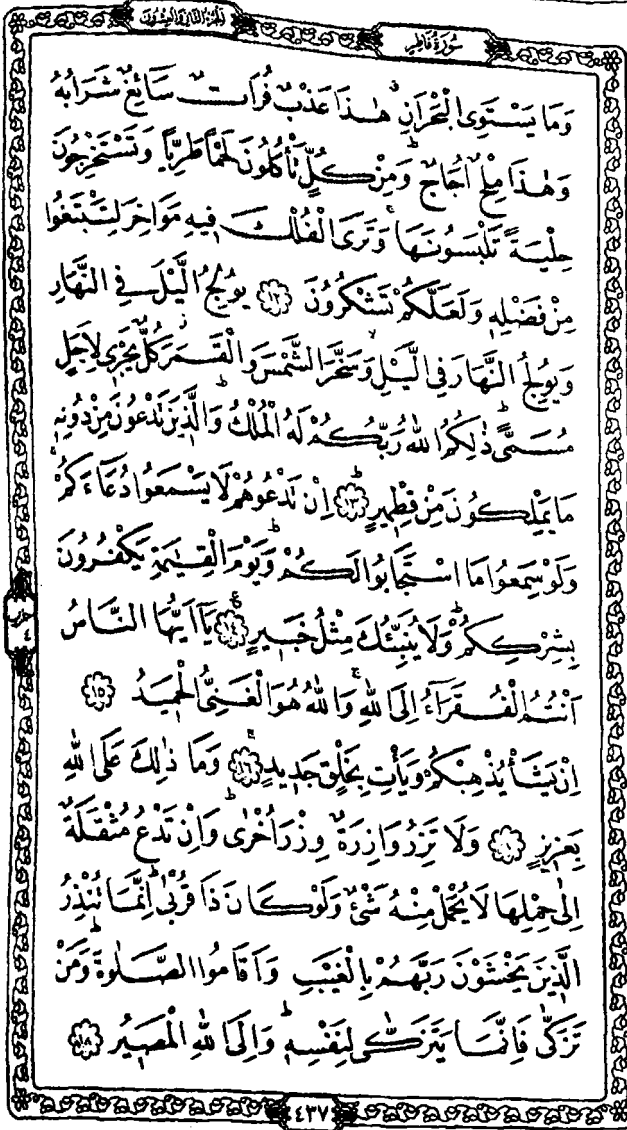 الجزء الثاني والعشرون
سورة فاطر
وَمَا يَسْتَوِي الْبَحْرَانِ هٰذَا عَذْبٌ فُرَاتٌ سَائِغٌ شَرَابُهُ
وَهٰذَا مِلْحٌ اُجَاجٌ وَمِنْ كُلٍّ تَأْكُلُونَ لَحْمًا طَرِيًّا وَتَسْتَخْرِجُونَ
حِلْيَةً تَلْبَسُونَهَا وَتَرَى الْفُلْكَ فِيهِ مَوَاخِرَ لِتَبْتَغُوا
مِنْ فَضْلِهِ وَلَعَلَّكُمْ تَشْكُرُونَ ﴿١٢﴾ يُولِجُ الَّيْلَ فِي النَّهَارِ
وَيُولِجُ النَّهَارَ فِي الَّيْلِ وَسَخَّرَ الشَّمْسَ وَالْقَمَرَ كُلٌّ يَجْرِي لِاَجَلٍ
مُسَمًّى ذٰلِكُمُ اللّٰهُ رَبُّكُمْ لَهُ الْمُلْكُ وَالَّذِينَ تَدْعُونَ مِنْ دُونِهِ
مَا يَمْلِكُونَ مِنْ قِطْمِيرٍ ﴿١٣﴾ اِنْ تَدْعُوهُمْ لَا يَسْمَعُوا دُعَاءَكُمْ
وَلَوْ سَمِعُوا مَا اسْتَجَابُوا لَكُمْ وَيَوْمَ الْقِيٰمَةِ يَكْفُرُونَ
بِشِرْكِكُمْ وَلَا يُنَبِّئُكَ مِثْلُ خَبِيرٍ ﴿١٤﴾ يَا اَيُّهَا النَّاسُ
اَنْتُمُ الْفُقَرَاءُ اِلَى اللّٰهِ وَاللّٰهُ هُوَ الْغَنِيُّ الْحَمِيدُ ﴿١٥﴾
اِنْ يَشَأْ يُذْهِبْكُمْ وَيَأْتِ بِخَلْقٍ جَدِيدٍ ﴿١٦﴾ وَمَا ذٰلِكَ عَلَى اللّٰهِ
بِعَزِيزٍ ﴿١٧﴾ وَلَا تَزِرُ وَازِرَةٌ وِزْرَ اُخْرٰى وَاِنْ تَدْعُ مُثْقَلَةٌ
اِلٰى حِمْلِهَا لَا يُحْمَلْ مِنْهُ شَيْءٌ وَلَوْ كَانَ ذَا قُرْبٰى اِنَّمَا تُنْذِرُ
الَّذِينَ يَخْشَوْنَ رَبَّهُمْ بِالْغَيْبِ وَاَقَامُوا الصَّلٰوةَ وَمَنْ
تَزَكّٰى فَاِنَّمَا يَتَزَكّٰى لِنَفْسِهِ وَاِلَى اللّٰهِ الْمَصِيرُ ﴿١٨﴾
٤٣٧